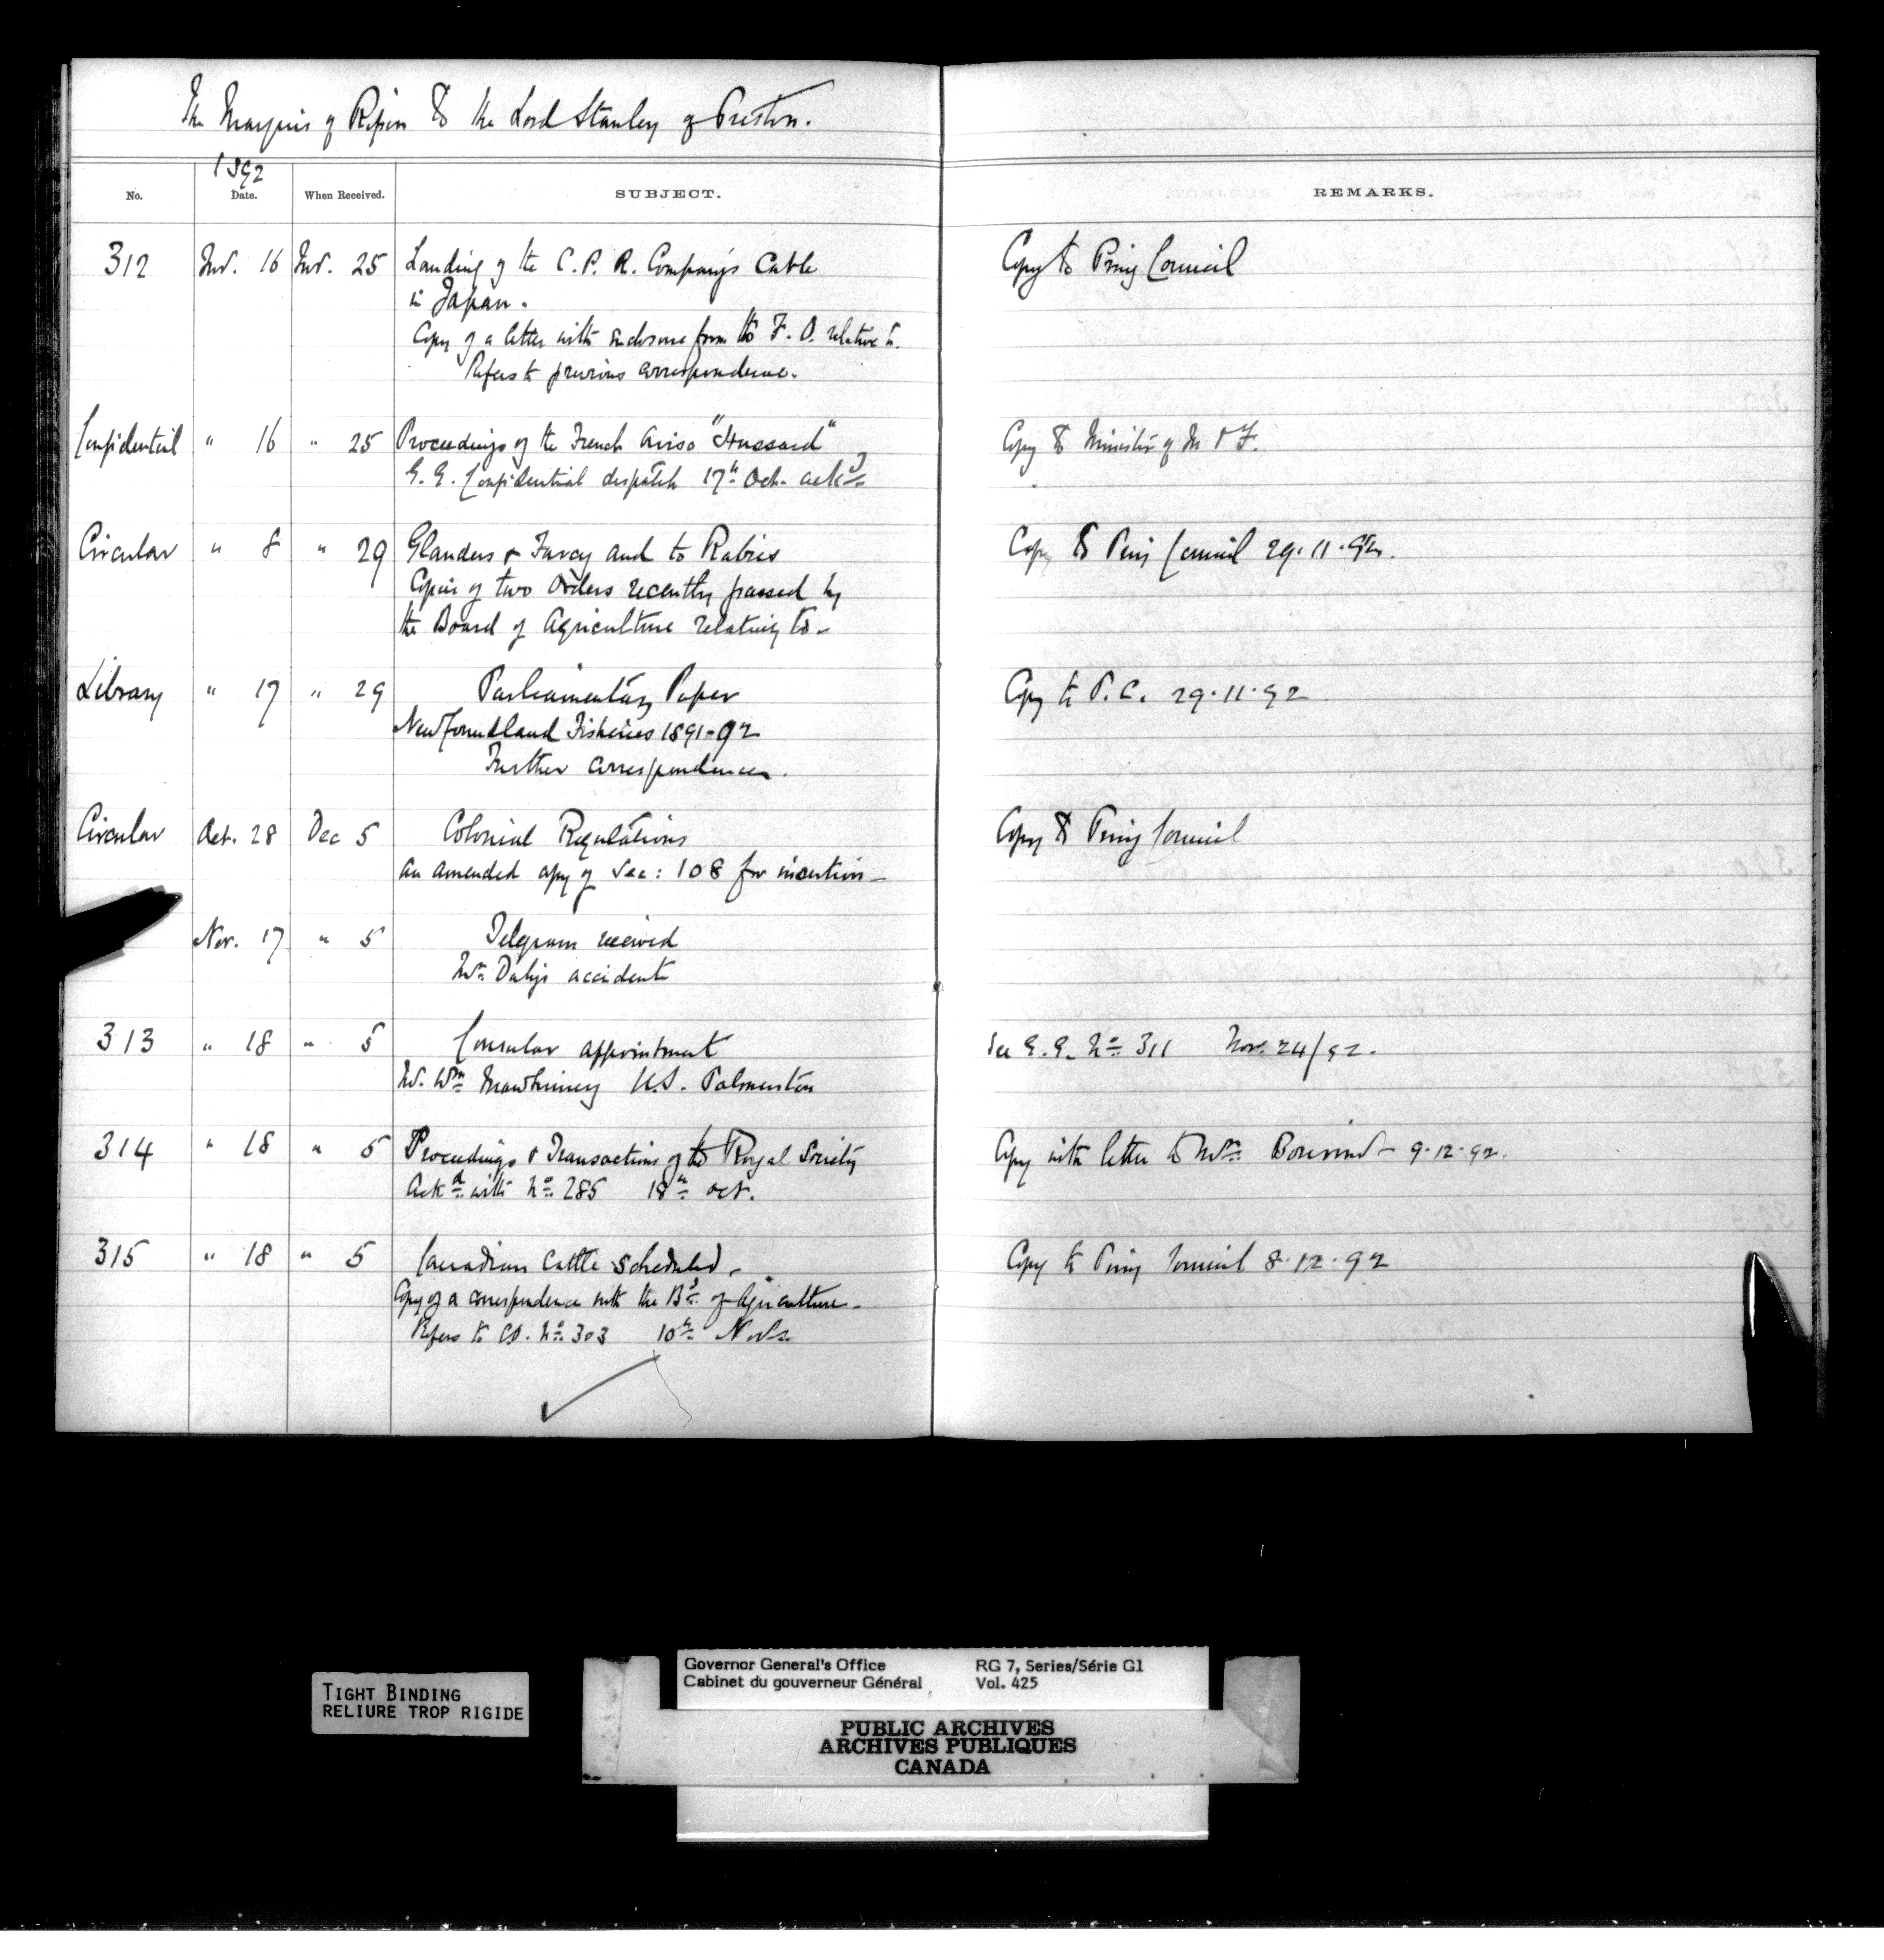 The Marquis of Ripon to the Lord Stanley of Preston.
1892
No. Date. When Received. SUBJECT. REMARKS.
312 Nov. 16 Nov. 25 Landing of the C. P. R. Company's Cable Copy to Privy Council
in Japan.
Copy of a letter with enclosure from the F. O. relative to.
Refers to previous correspondence.
Confidential " 16 " 25 Proceedings of the French Aviso "Hussard" Copy to Minister of M & F.
G. G. Confidential despatch 17th Oct. ackd
Circular " 8 " 29 Glanders & Farcy and to Rabies Copy to Privy Council 29.11.92.
Copies of two Orders recently passed by
the Board of Agriculture relating to -
Library " 17 " 29 Parliamentary Paper Copy to P. C. 29.11.92
Newfoundland Fisheries 1891-92
Further correspondence.
Circular Oct. 28 Dec 5 Colonial Regulations Copy to Privy Council
an amended copy of Sec: 108 for insertion -
Nov. 17 " 5 Telegram received
Mr. Daly's accident
313 " 18 " 5 Consular appointment See G. G. No. 311 Nov. 24/92.
Mr. Wm Mawhinney U.S. Palmerston
314 " 18 " 5 Proceedings & Transactions of the Royal Society Copy with letter to Mr. Bourinot - 9.12.92.
Ackd with No. 285 18th Oct.
315 " 18 " 5 Canadian Cattle scheduled - Copy to Privy Council 8.12.92
Copy of a correspondence with the Bd. of Agriculture -
Refers to CO. No. 303 10th Nov.
TIGHT BINDING
RELIURE TROP RIGIDE
Governor General's Office RG 7, Series/Série G1
Cabinet du gouverneur Général Vol. 425
PUBLIC ARCHIVES
ARCHIVES PUBLIQUES
CANADA